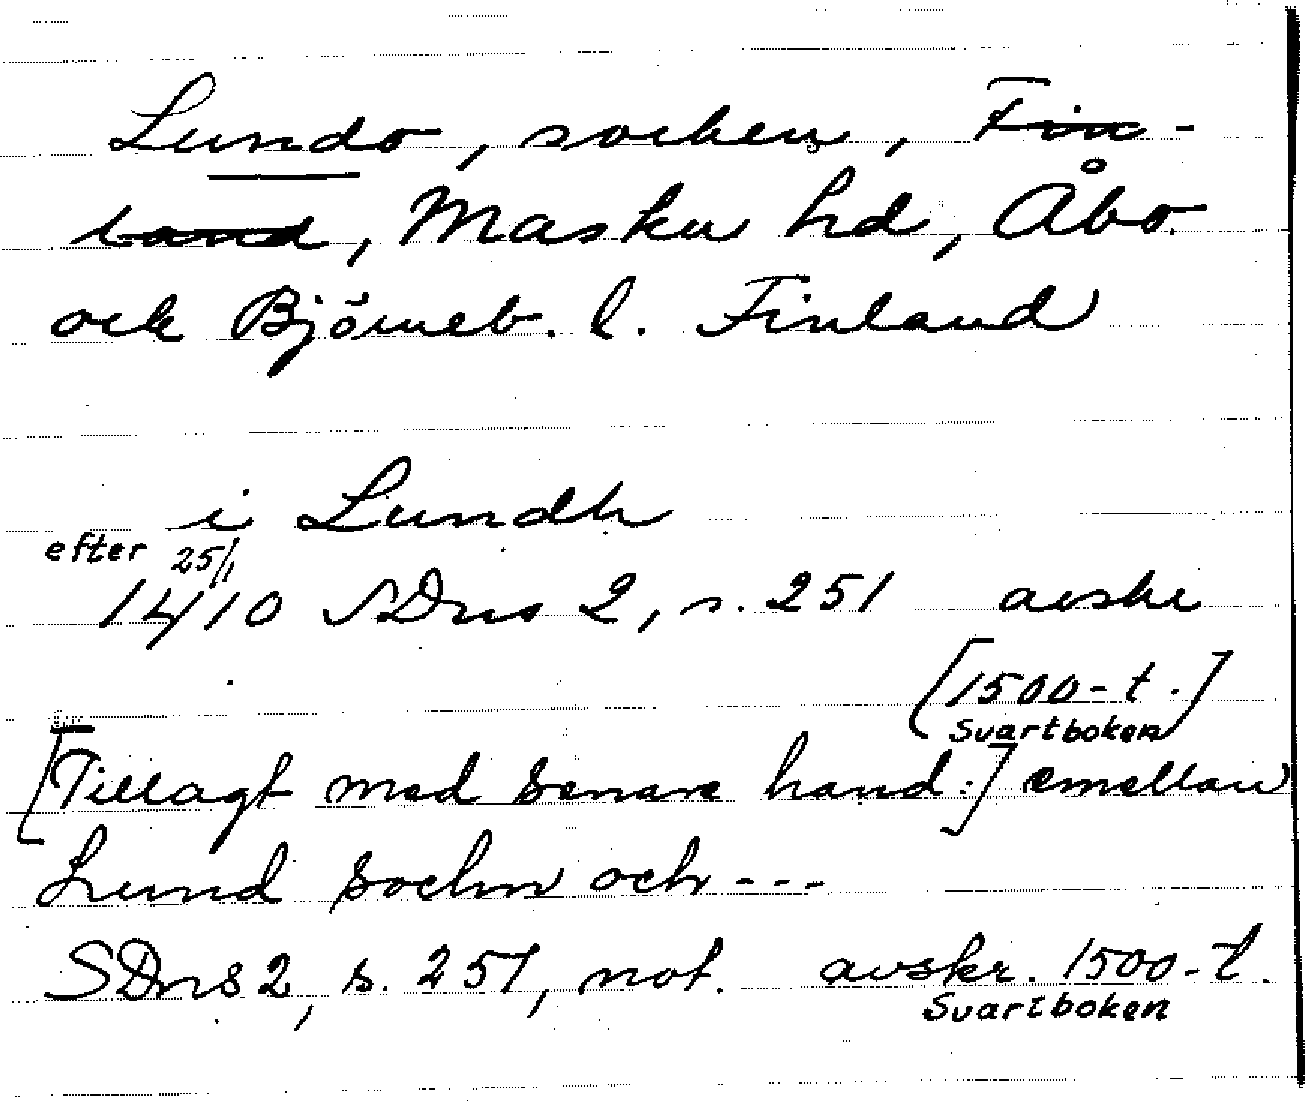 Lundo, socken, Fin-
land, Masku hd, Åbo
och Björneb. l. Finland
i Lundh
efter 25/1
1410 SDns 2, s. 251 avskr
[1500-t.]
Svartboken
[Tillagt med senare hand.] emellan
Lund sochn och ---
SDns 2, s. 251, not. avskr. 1500-t.
Svartboken